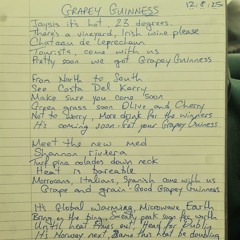 GRAPEY GUINNESS
12.8.25
Jaysis it's hot, 23 degrees.
There's a vineyard, Irish wine please
Chateau de Leprechaun
Tourists, come with us
Pretty soon we got Grapey Guinness
From North to South
See Costa Del Kerry
Make sure you come soon
Green grass soon Olive and Cherry
Not to worry, More drink for the winners
It's coming soon - Get your Grapey Guinness
Meet the new med
Shannon, Riviera
Turf pina coladas down neck
Heat is bareable
Moroccans, Italians, Spanish come with us
Grape and grain - Good Grapey Guinness
It's Global Warming, Microwave Earth
Bring on the bling, sweaty
Until heat dies out, Head for Dublin
It's Norway next, Damn this heat be doubling